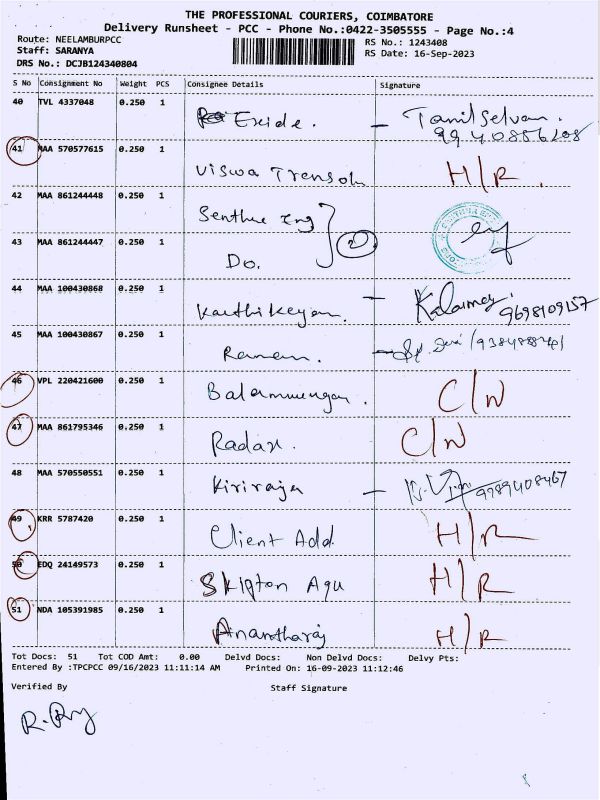 THE PROFESSIONAL COURIERS, COIMBATORE
Delivery Runsheet - PCC - Phone No.:0422-3505555 - Page No.:4
Route: NEELAMBURPCC RS No.: 1243408
Staff: SARANYA RS Date: 16-Sep-2023
DRS No.: DCJB124340804
S No Consignment No Weight PCS Consignee Details Signature
40 TVL 4337048 0.250 1 Exide. - Tamilselvan.
41 MAA 570577615 0.250 1 Viswa H/R.
42 MAA 861244448 0.250 1 Eng
43 MAA 861244447 0.250 1 Do. 2
44 MAA 100430868 0.250 1 Karthikeyan. - 9698109157
45 MAA 100430867 0.250 1 Raman. -
46 VPL 220421600 0.250 1 Balamurugan. C/N
47 MAA 861795346 0.250 1 C/N
48 MAA 570550551 0.250 1 Kiriraja - 9789408467
49 KRR 5787420 0.250 1 Client Add. H/R
50 EDQ 24149573 0.250 1 H/R
51 NDA 105391985 0.250 1 Anantharaj H/R
Tot Docs: 51 Tot COD Amt: 0.00 Delvd Docs: Non Delvd Docs: Delvy Pts:
Entered By :TPCPCC 09/16/2023 11:11:14 AM Printed On: 16-09-2023 11:12:46
Verified By Staff Signature